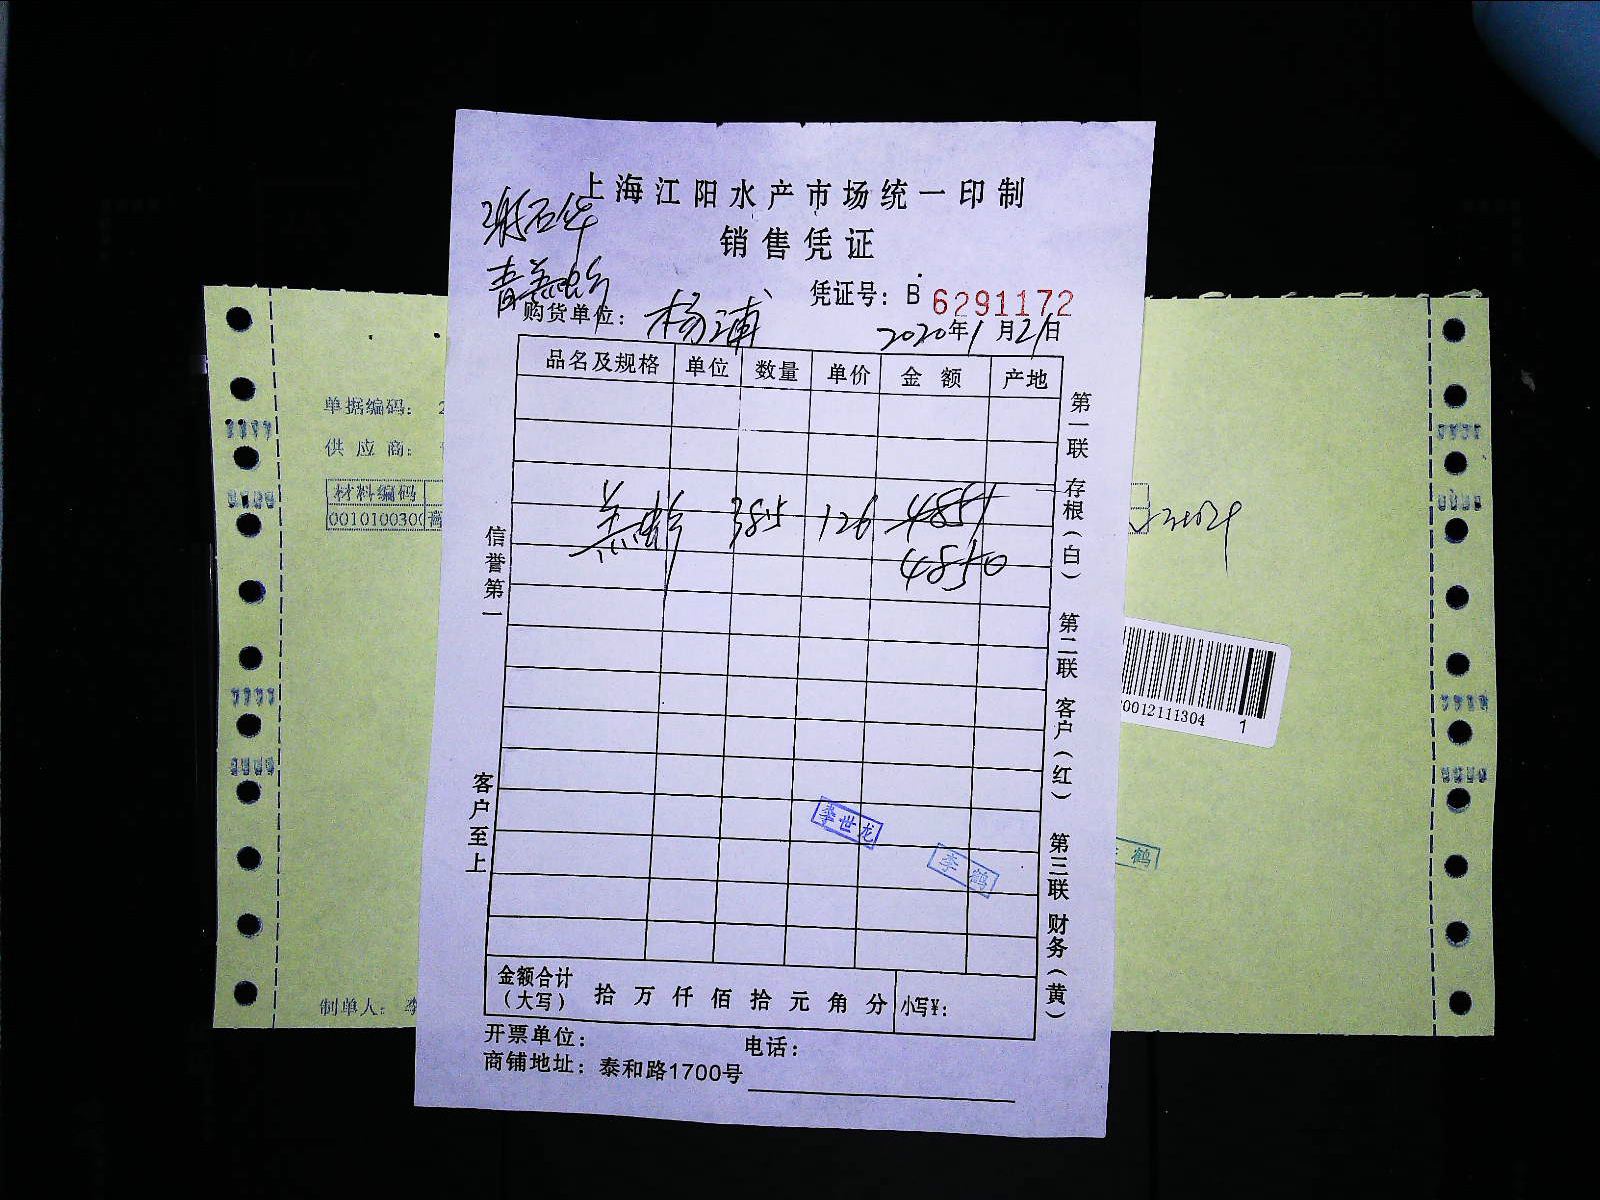 上海江阳水产市场统一印制
销售凭证
凭证号：B 6291172
购货单位：杨浦
2020年1月21日
品名及规格 单位 数量 单价 金额 产地
385 126 4851
4850
信誉第一
客户至上
第一联 存根（白） 第二联 客户（红） 第三联 财务（黄）
李世龙
李鹤
金额合计（大写） 拾 万 仟 佰 拾 元 角 分 小写¥：
开票单位： 电话：
商铺地址：泰和路1700号
单据编码： 2
供应商：
材料编码
0010100300
制单人：李
0012111304 1
鹤